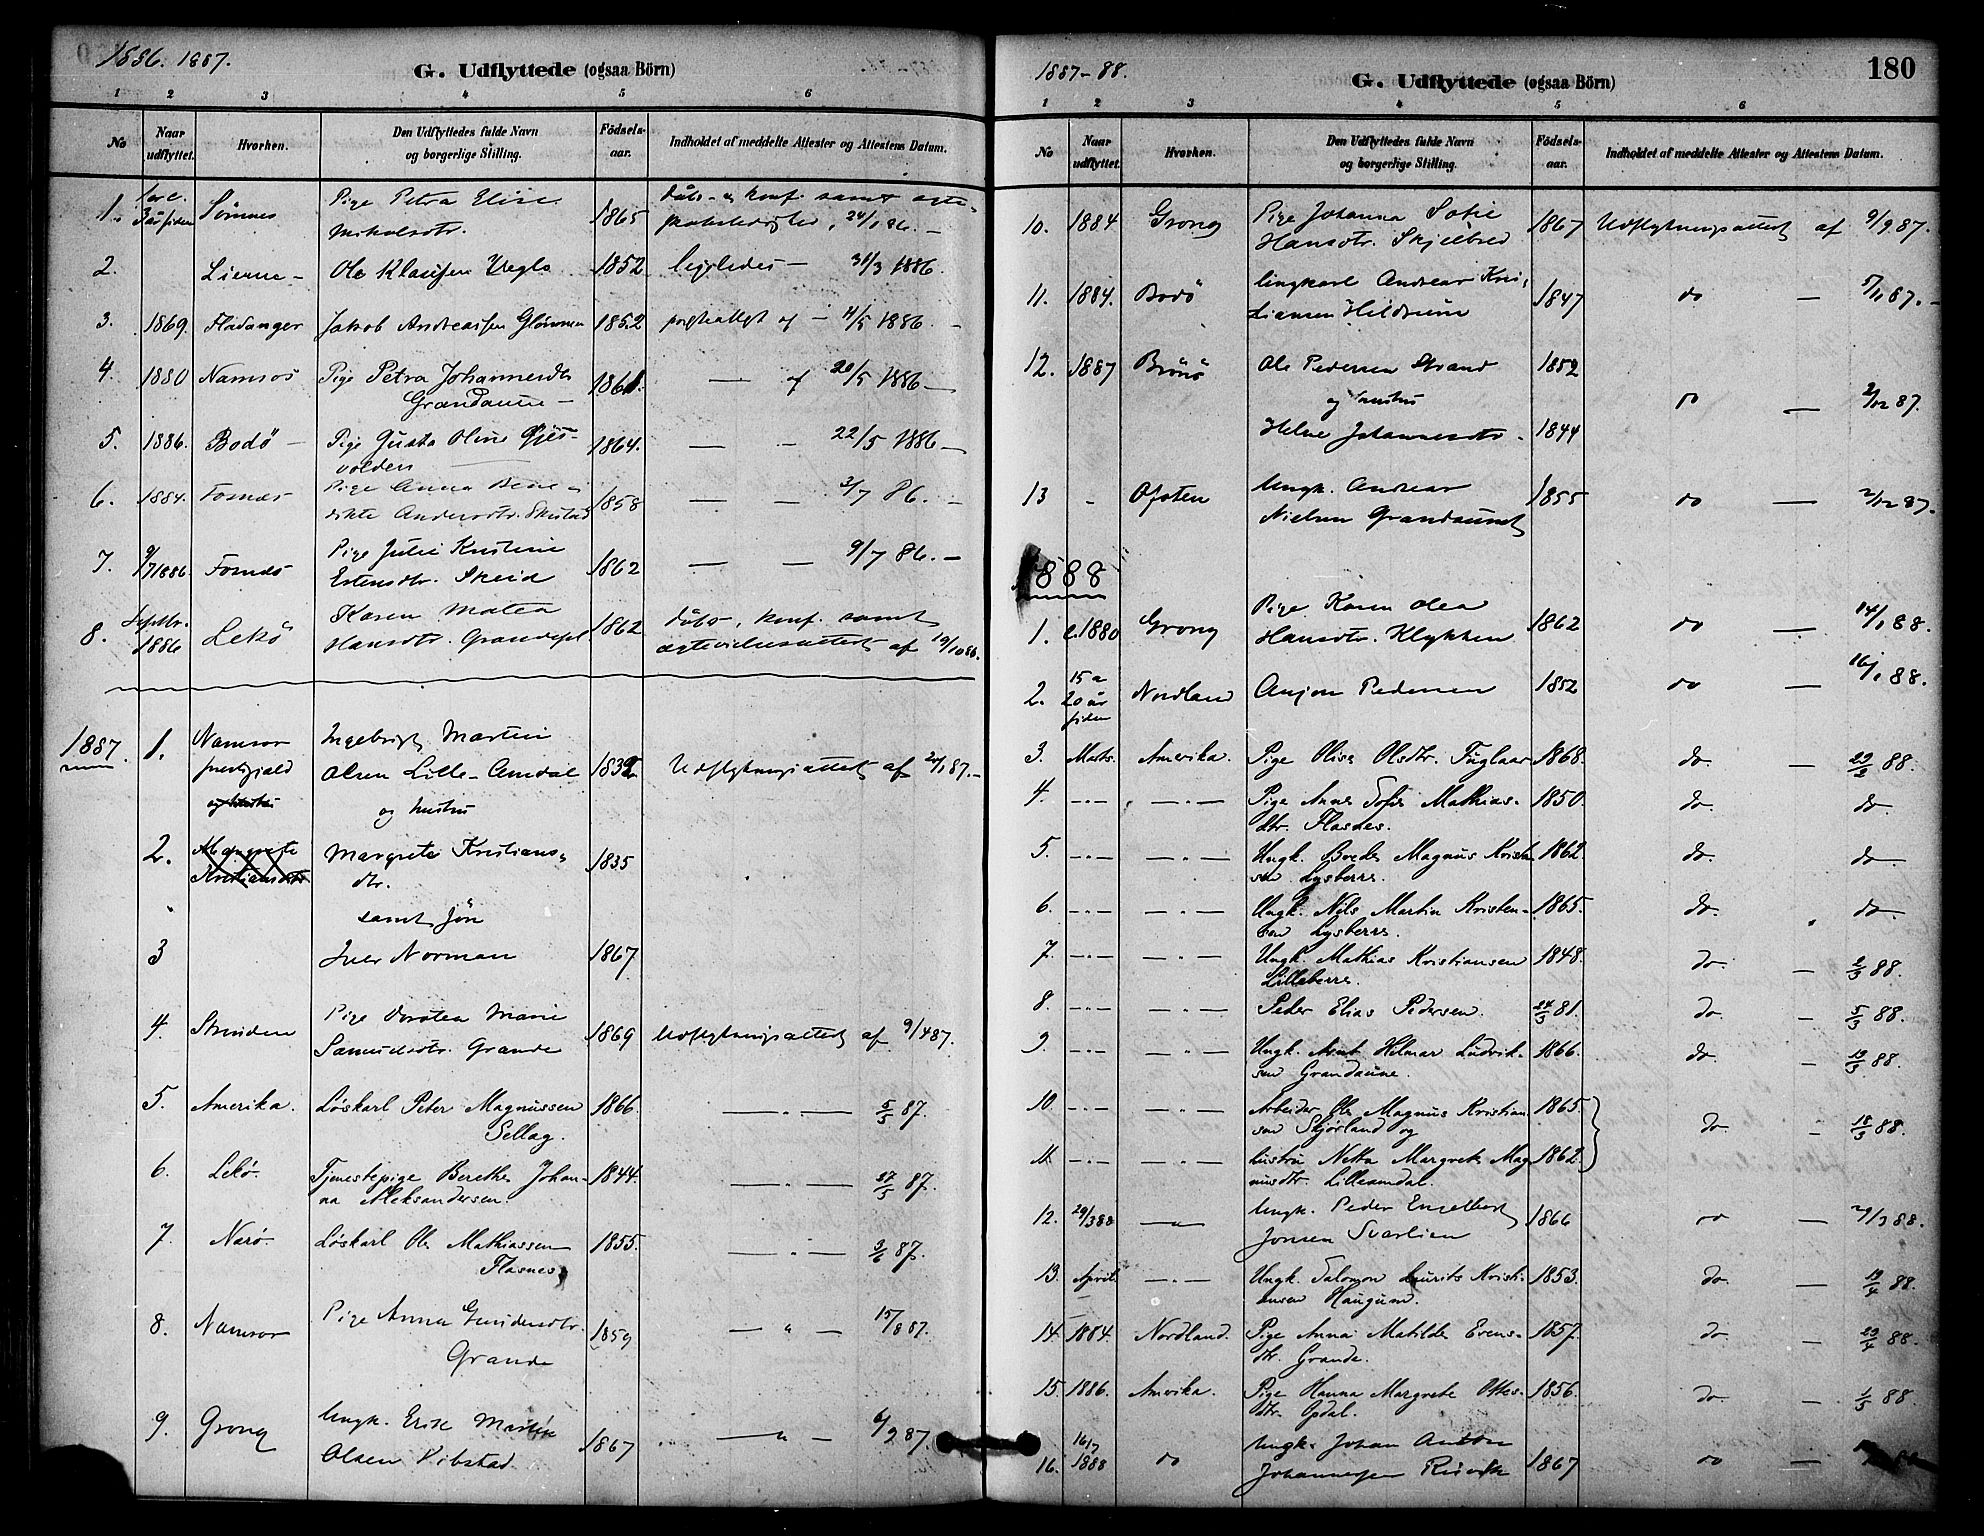 1886. 1887.
G. Udflyttede (ogsaa Börn)
1 2 3 4 5 6
No
Naar udflyttet.
Hvorhen.
Den Udflyttedes fulde Navn og borgerlige Stilling.
Födsels-aar.
Indholdet af meddelte Attester og Attestens Datum.
1. 3 år siden Sömnes Pige Petra Elise 1865 Dåbs- og konf. samt
Nikolsdtr.
2. Lierne - Ole Klausen 1852 ligeledes - 31/3 1886.
3. 1869. Fladanger Jakob Andreassen 1852 af - 4/5 1886. -
4. 1880 Namsos Pige Petra Johannesdtr 1861. — af 20/5 1886 -
Grandaune -
5. 1886. Bodø - Pige Gusta Oline Gjes- 1864. — - 22/5 1886 -
volden
6. 1884. Fosnes Pige Anna Bene- 1858 — - 3/7 86. -
dikte Andersdtr.
7. 9/7 1886. Fosnes Pige Julie Kristine 1862 — — 9/7 86. -
Estensdtr. Skeid
8. Septbr. 1886 Lekö Karen Matea 1862 Dåbs-, konf. samt
Hansdtr. af 19/10 86.
1887. 1. Namsos Ingebrigt Martin
præstegjeld Olsen Lille-Amdal 1832 Udflytningsattest af 20/1 87. -
og hustru og hustru
2. Margrete Margrete Kristians- 1835
Kristiansdtr dtr.
samt Sön
3 Iver Norman 1867
4. Strinden Pige Dorotea Marie 1869 Udflytningsattest af 9/4 87.
Samuelsdtr. Grande
5. Amerika. Løskarl Peter Magnussen 1866 — " — 5/5 87.
Sellæg.
6. Lekø Tjenestepige Berethe Johan- 1844. — " — 27/5 87.
na Aleksandersen.
7. Nærø. Løskarl Ole Mathiassen 1855. — " — 3/6 87.
Flasnes
8. Namsos Pige Anna 1859 — " — 15/8 87.
Grande
9. Grong Ungk. Erik Martin 1867 — " - 6/9 87.
Olsen Vibstad
1887-88.
G. Udflyttede (ogsaa Börn)
180
1 2 3 4 5 6
No
Naar udflyttet.
Hvorhen.
Den Udflyttedes fulde Navn og borgerlige Stilling.
Födsels-aar.
Indholdet af meddelte Attester og Attestens Datum.
10. 1884 Grong Pige Johanna Sofie 1867 Udflytningsattest af 9/9 87.
Hansdtr. Skjelbred
11. 1884. Bodö Ungkarl Andreas Kris- 1847 do — 5/11 87. -
tiansen Hildrum
12. 1887 Brönö Ole Pedersen Strand 1852
og hustru do — 2/12 87.
Helene Johannesdtr. 1844
13 - Ofoten Ungk. Andreas 1855 do — 2/12 87.
Nielsen Grandaunet
1888
1. 1880 Grong Pige Karen Olea 1862 do — 14/1 88.
Hansdtr. Klykken
2. 15 a 20 år siden Nordland Anjon Pedersen 1852 do — 16/1 88.
3. Marts. Amerika. Pige Olise Olsdtr. Fuglaar 1868. do. — 29/2 88.
4. -"- —"— Pige Anne Sofie Mathias- 1850. do. do.
dtr. Flasnes.
5. -"- —"— Ungk. Brede Magnus Kristen- 1862. do. do.
sen Lysberg.
6. -"- —"— Ungk. Nils Martin Kristen- 1865. do. do.
sen Lysberg.
7. -"- —"— Ungk. Mathias Kristiansen 1848. do. — 2/3 88.
Lilleberg.
8. -"- —"— Peder Elias Pedersen. 24/3 81. do — 5/3 88.
9. -"- —"— Ungk. Arnt Helmar Ludvik- 1866. do. — 13/3 88.
sen Grandaune.
10. -"- —"— Arbeider Ole Magnus Kristian- 1865.
sen Skjørland og do. - 18/3 88.
11. -"- —"— hustru Netta Margrete Mag- 1862.
nusdtr. Lilleamdal.
12. 29/3 88 —"— Ungk. Peder Engelbert 1866 do — 29/3 88.
Jonsen Svarlien
13. April. —"— Ungk. Salomon Laurits Kristi- 1853. do. — 19/4 88.
ansen Haugum.
14. 1884. Nordland. Pige Anna Matilde Evens- 1857. do — 23/4 88.
dtr. Grande.
15. 1886. Amerika. Pige Hanna Margrete Ottes- 1856. do — 1/5 88.
dtr. Opdal.
16. 1888 do Ungk. Johan Anton 1867 do —
Johannessen